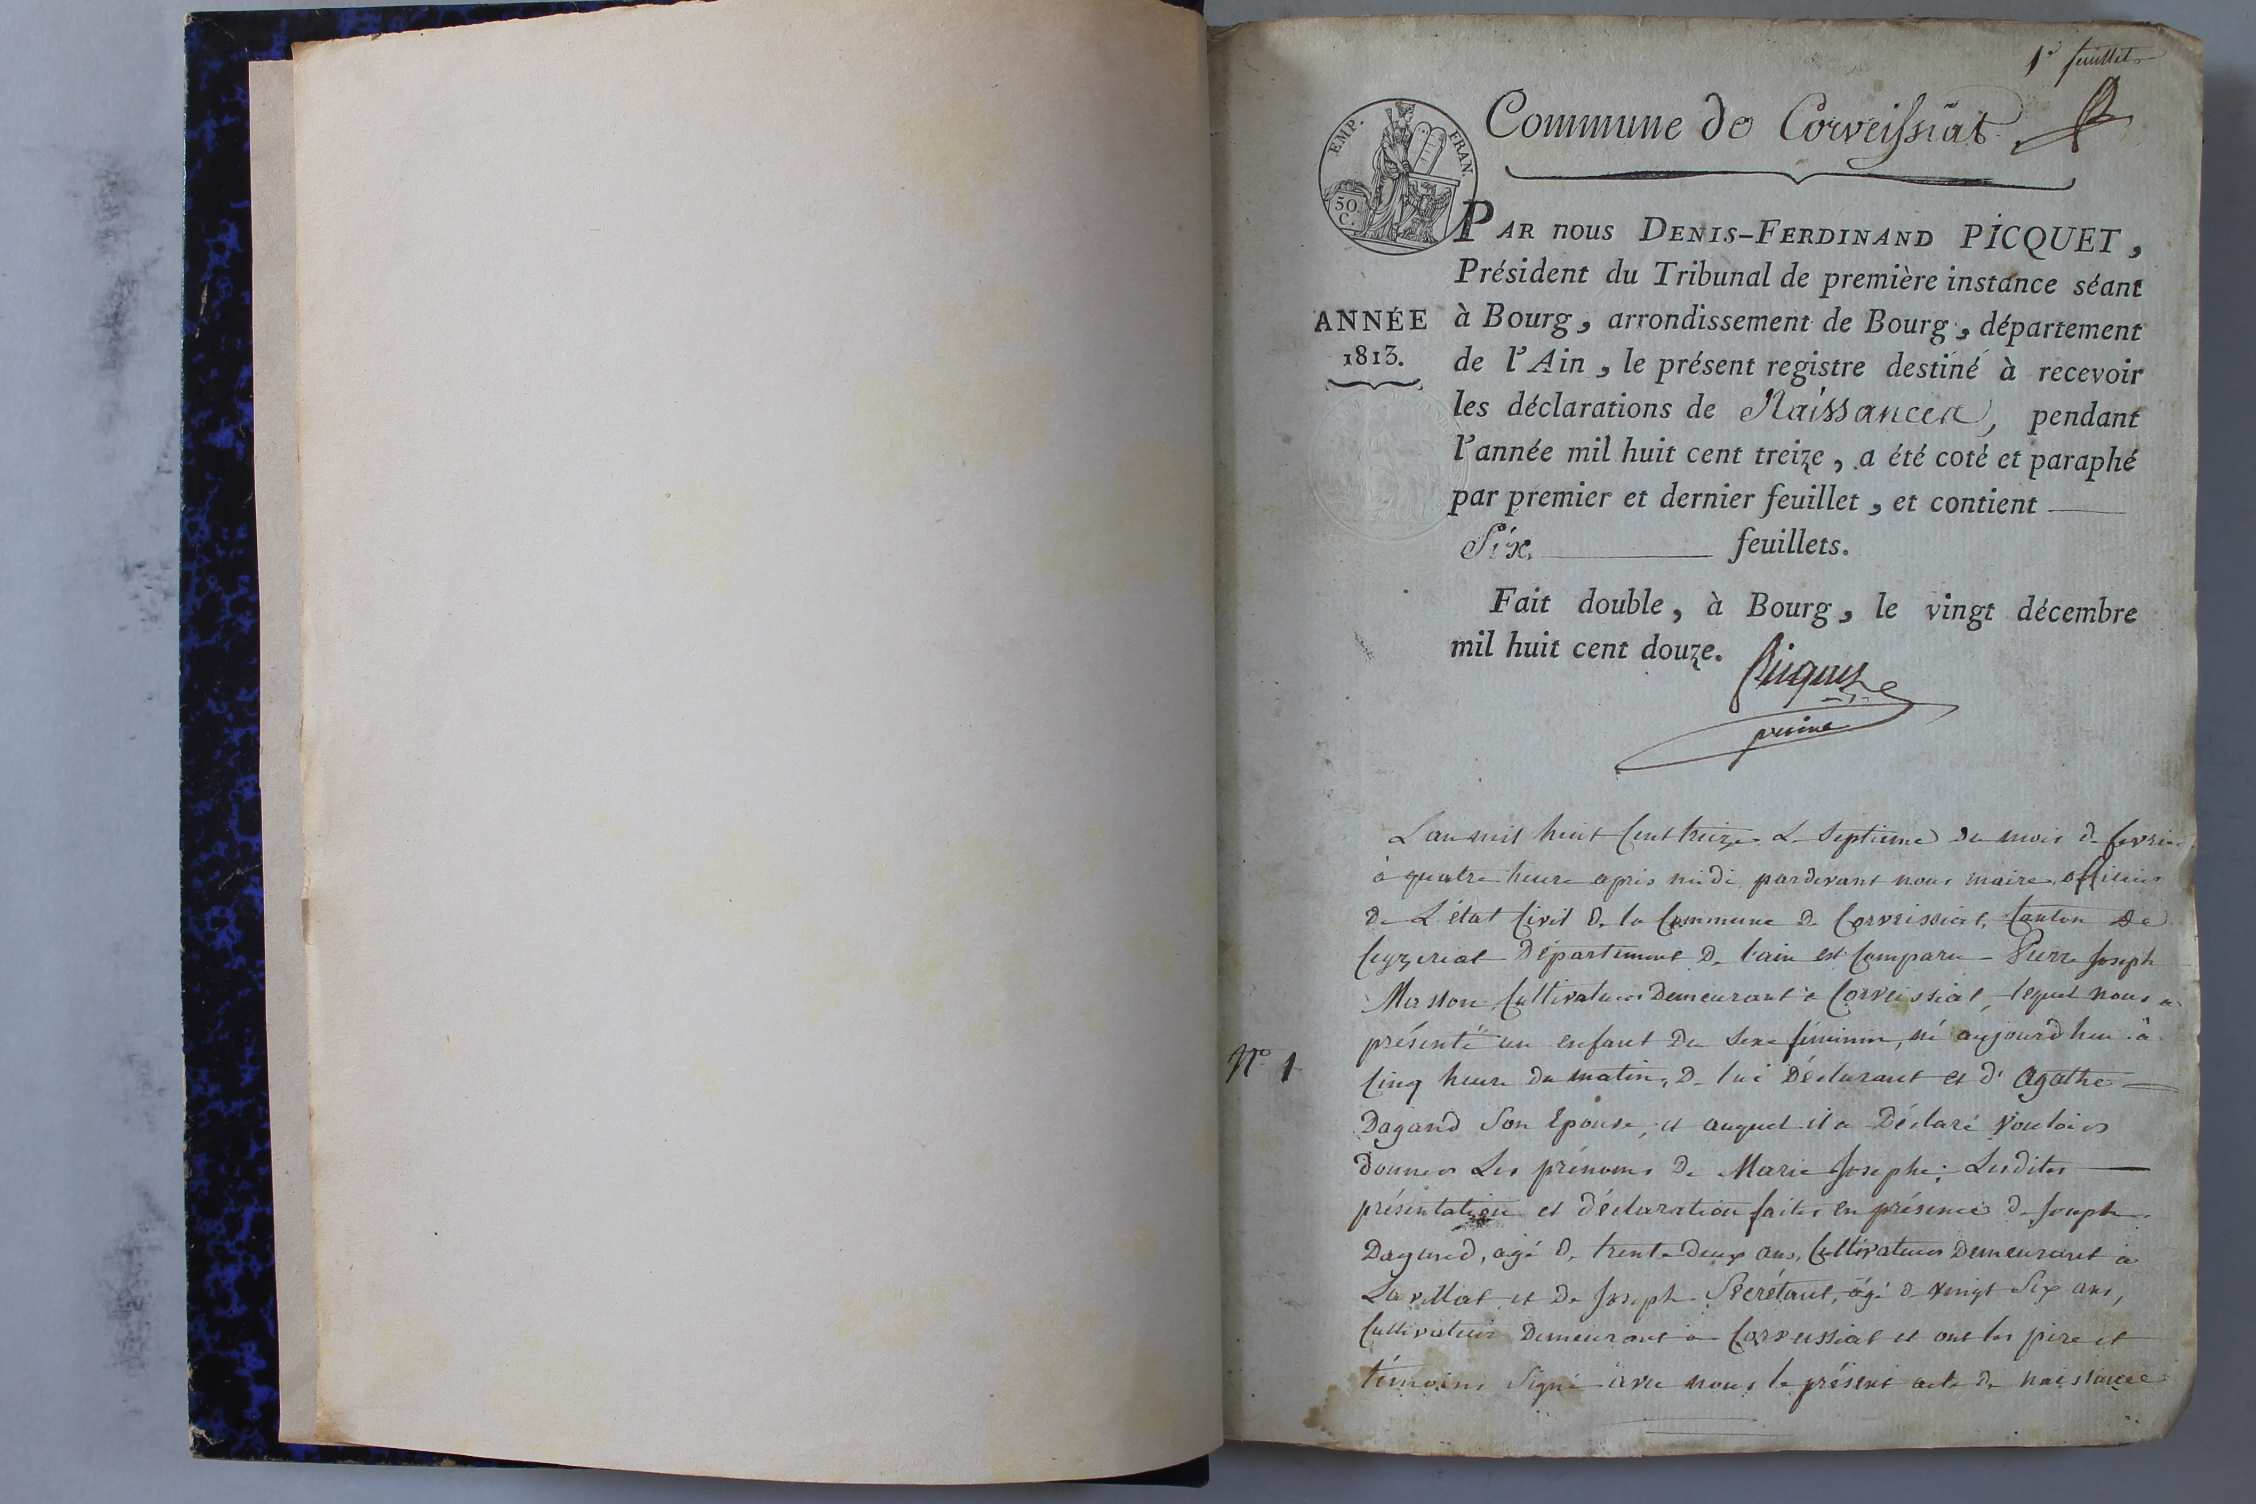 1er feuillet
Commune de Corveissiat
EMP. FRAN.
50
C.
PAR nous DENIS-FERDINAND PICQUET,
Président du Tribunal de première instance séant
ANNÉE
1813.
à Bourg, arrondissement de Bourg, département
de l'Ain, le présent registre destiné à recevoir
les déclarations de Naissances, pendant
l'année mil huit cent treize, a été coté et paraphé
par premier et dernier feuillet, et contient
Six feuillets.
Fait double, à Bourg, le vingt décembre
mil huit cent douze.
Picquet
L'an mil huit Cent treize Le Septieme du mois de fevrier
à quatre heure apris midi pardevant nous maire officier
De L'état Civil De la Commune De Corveissiat, Canton de
Ceyzeriat Département De l'ain est Comparu Pierre Joseph
Masson Cultivateur Demeurant à Corveissiat, lequel nous a
présenté un enfant Du Sexe féminin, né aujourd'hui à
N° 1
Cinq heure du matin, De lui Déclarant et d'Agathe
Dagand Son Epouse, et auquel il a Déclaré Vouloir
Donner Les prénoms De Marie Josephe; Lesdites
présentation et déclaration faites en présence De Joseph
Dagand, agé De trente Deux ans, Cultivateur Demeurant à
Lavillat et De Joseph Secrétant, âgé de vingt Six ans,
Cultivateur Demeurant à Corveissiat et ont les père et
témoins Signé avec nous le présent acte De naissance